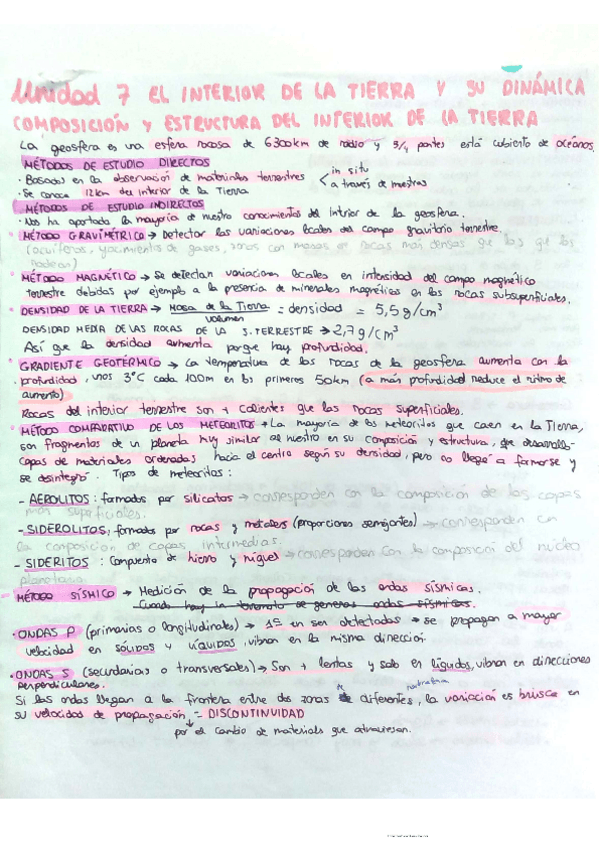 Unidad 7 EL INTERIOR DE LA TIERRA Y SU DINÁMICA
COMPOSICIÓN Y ESTRUCTURA DEL INTERIOR DE LA TIERRA
La geosfera es una esfera rocosa de 6300km de radio y 3/4 partes está cubierto de océanos.
MÉTODOS DE ESTUDIO DIRECTOS
· Basados en la observación de materiales terrestres < in situ
a través de muestras
· Se conoce 12km del interior de la Tierra
MÉTODOS DE ESTUDIO INDIRECTOS
· Nos ha aportado la mayoría de nuestro conocimientos del intrior de la geosfera.
MÉTODO GRAVIMÉTRICO → Detectar las variaciones locales del campo gravitorio terrestre
(acuíferos, yacimientos de gases, zonas con masas de rocas más densas que las que las
rodean)
MÉTODO MAGNÉTICO → Se detectan variaciones locales en intensidad del campo magnético
terrestre debidas por ejemplo a la presencia de minerales magnéticos en las rocas subsuperficiales.
DENSIDAD DE LA TIERRA → Masa de la Tierra / volumen = densidad = 5,5 g/cm³
DENSIDAD MEDIA DE LAS ROCAS DE LA S. TERRESTRE → 2,7 g/cm³
Así que la densidad aumenta porque hay profundidad.
GRADIENTE GEOTÉRMICO → La temperatura de las rocas de la geosfera aumenta con la
profundidad, unos 3°C cada 100m en los primeros 50km (a más profundidad reduce el ritmo de
aumento)
Rocas del interior terrestre son + calientes que las rocas superficiales.
MÉTODO COMPARATIVO DE LOS METEORITOS → La mayoría de los meteoritos que caen en la Tierra,
son fragmentos de un planeta muy similar al nuestro en su composición y estructura, que desarrolló
capas de materiales ordenadas hacia el centro según su densidad, pero no llegó a formarse y
se desintegró. Tipos de meteoritos:
- AEROLITOS: formados por silicatos → corresponden con la composición de las capas
más superficiales.
- SIDEROLITOS, formados por rocas y metales (proporciones semejantes) → corresponden con
la composición de capas intermedias.
- SIDERITOS: Compuesto de hierro y níquel → corresponden con la composición del núcleo
planetario.
MÉTODO SÍSMICO → Medición de la propagación de las ondas sísmicas.
Cuando hay un terremoto se generan ondas sísmicas.
· ONDAS P (primarias o longitudinales) → 1ª en ser detectadas → se propagan a mayor
velocidad en sólidos y líquidos, vibran en la misma dirección.
· ONDAS S (secundarias o transversales) → Son + lentas y solo en líquidos, vibran en direcciones
perpendiculares.
Si las ondas llegan a la frontera entre dos zonas de diferentes, la variación es brusca en
su velocidad de propagación - DISCONTINUIDAD
por el cambio de materials que atraviesan.